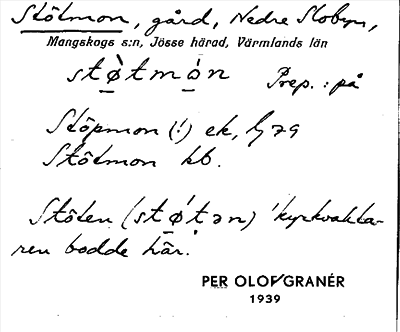 Stötmon, gård, Nedre Slobyn,
Mangskogs s:n, Jösse härad, Värmlands län
stø̀tmòn Prep.: på
Stöpmon (!) ek, Lj 79
Stötmon kb.
Stöten (stǿtən) 'kyrkvakta-
ren bodde här.
PER OLOF GRANÉR
1939